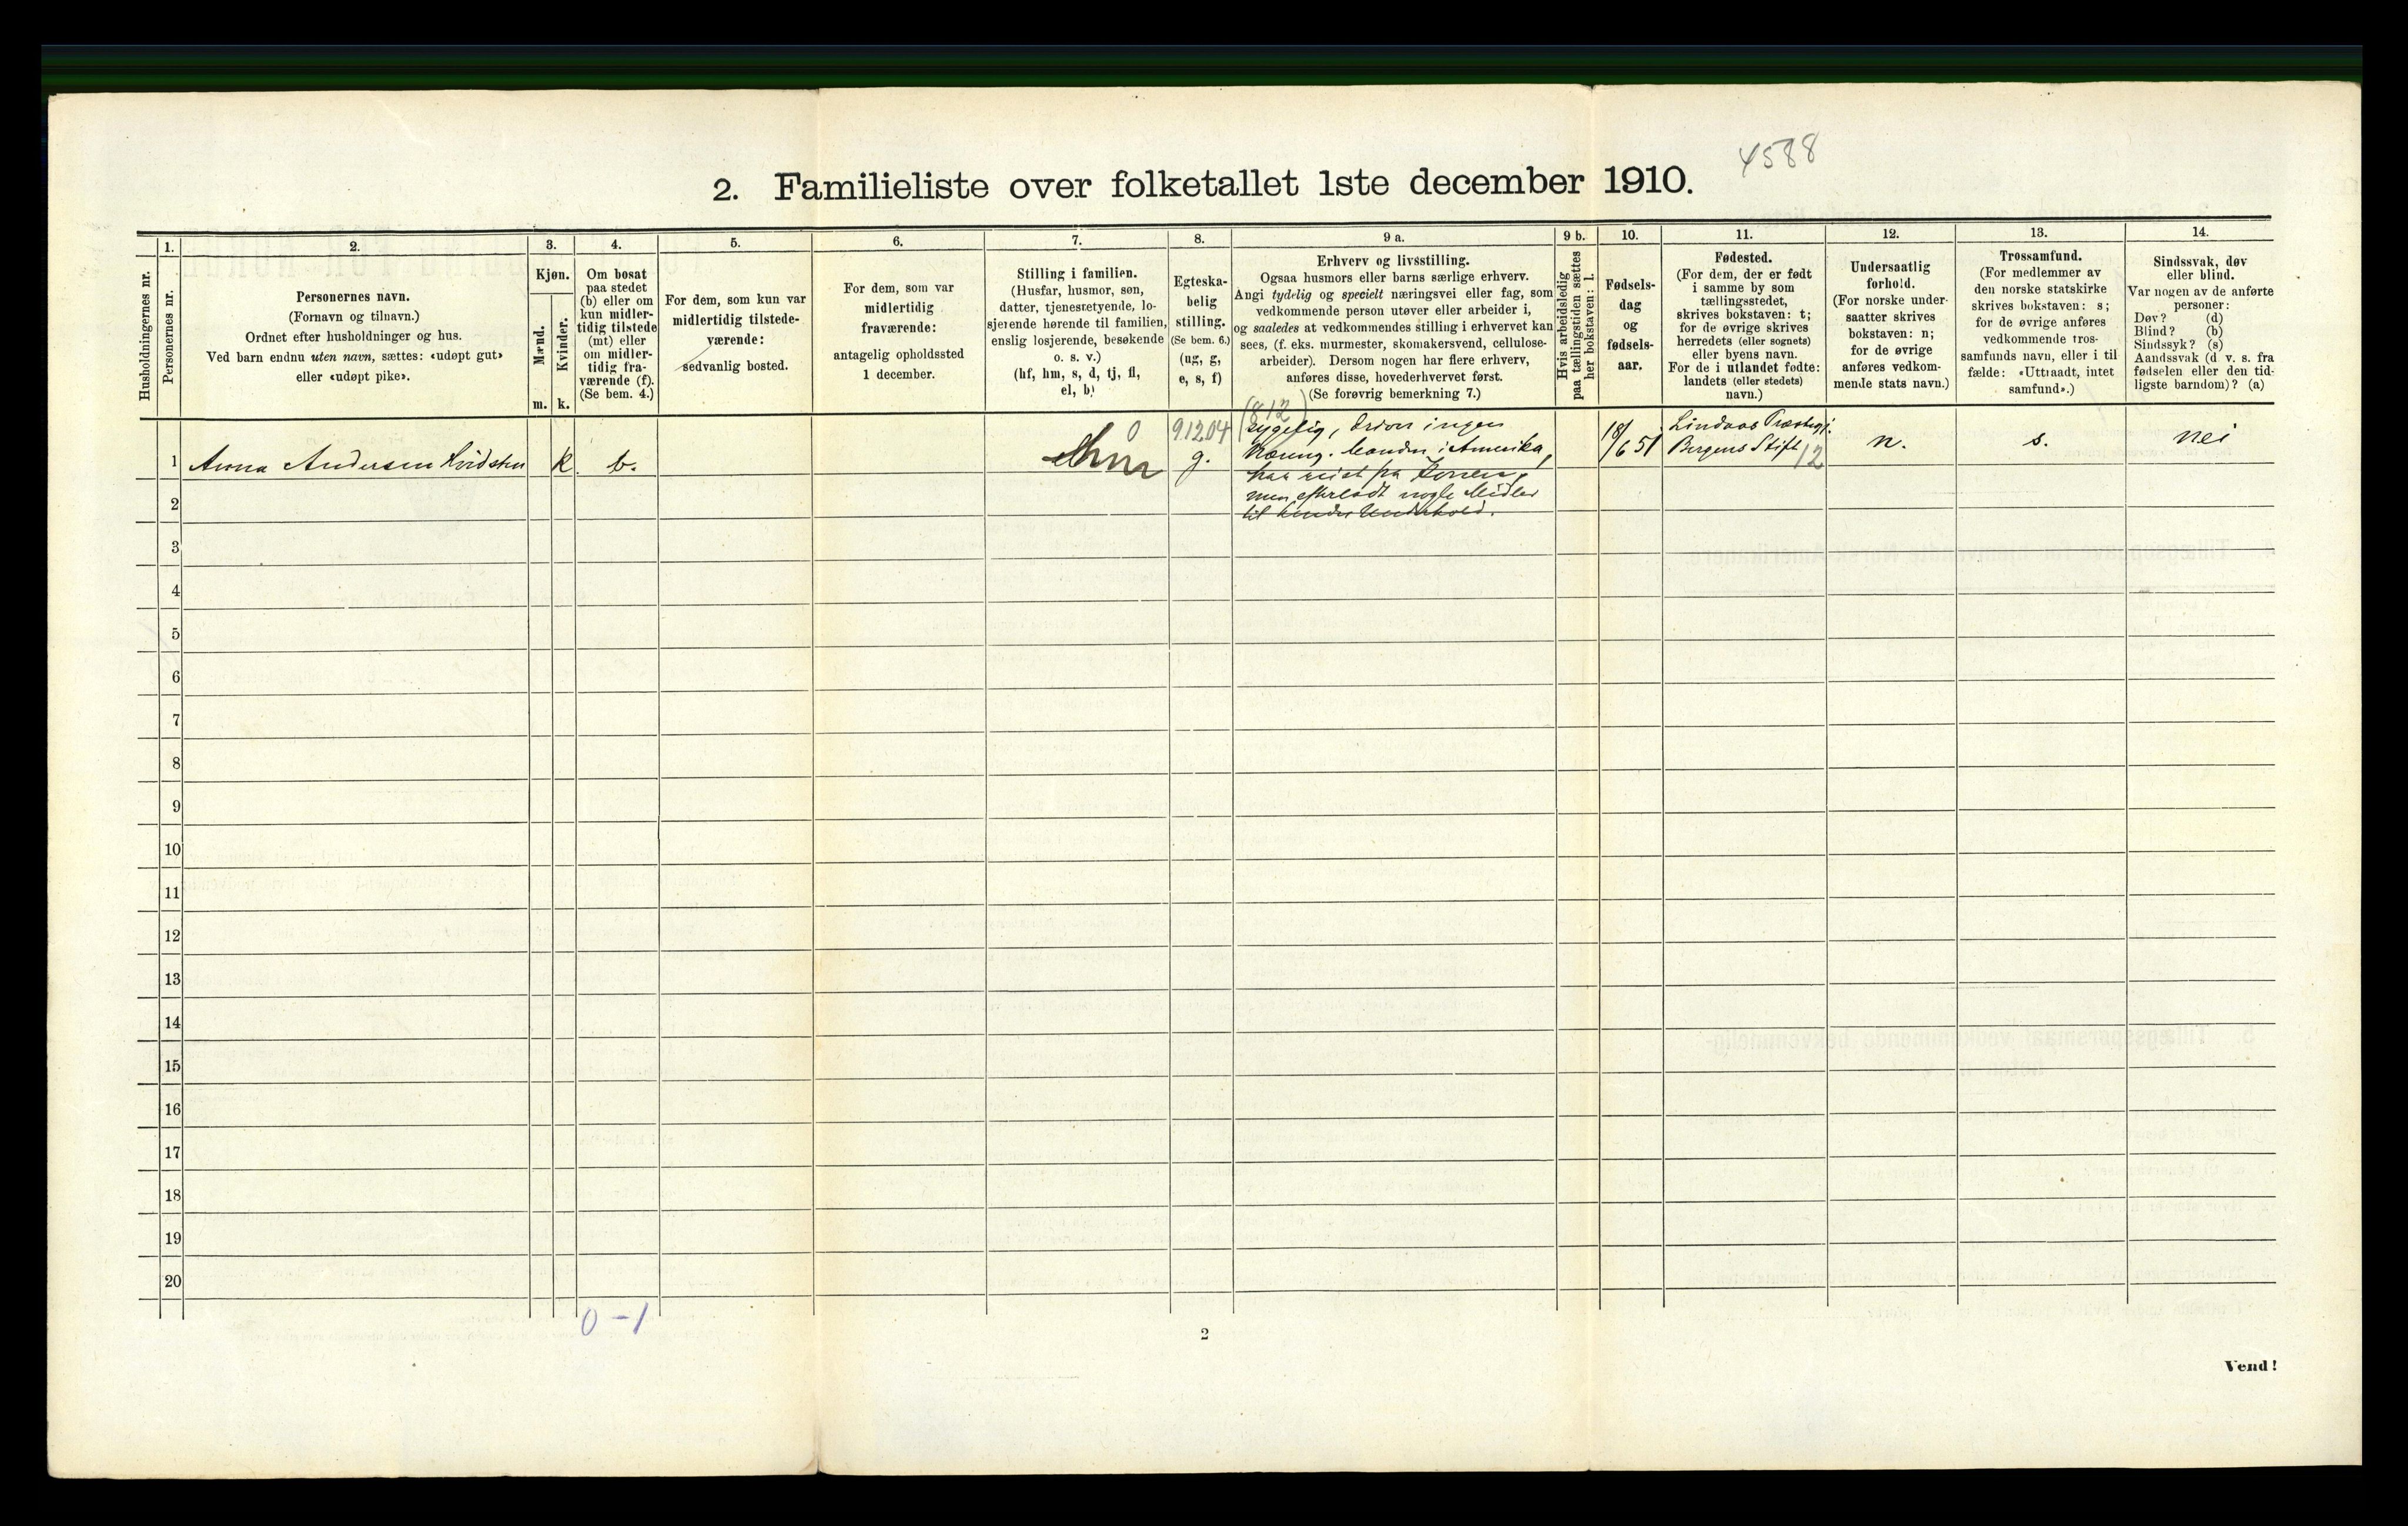 4588
2. Familieliste over folketallet 1ste december 1910.
Husholdningernes nr.
1.
Personernes nr.
2.
Personernes navn.
(Fornavn og tilnavn.)
Ordnet efter husholdninger og hus.
Ved barn endnu uten navn, sættes: «udøpt gut»
eller «udøpt pike».
3.
Kjøn.
Mænd.
Kvinder.
m. k.
4.
Om bosat
paa stedet
(b) eller om
kun midler-
tidig tilstede
(mt) eller
om midler-
tidig fra-
værende (f).
(Se bem. 4.)
5.
For dem, som kun var
midlertidig tilstede-
værende:
sedvanlig bosted.
6.
For dem, som var
midlertidig
fraværende:
antagelig opholdssted
1 december.
7.
Stilling i familien.
(Husfar, husmor, søn,
datter, tjenestetyende, lo-
sjerende hørende til familien,
enslig losjerende, besøkende
o. s. v.)
(hf, hm, s, d, tj, fl,
el, b)
8.
Egteska-
belig
stilling.
(Se bem. 6.)
(ug, g,
e, s, f)
9 a.
Erhverv og livsstilling.
Ogsaa husmors eller barns særlige erhverv.
Angi tydelig og specielt næringsvei eller fag, som
vedkommende person utøver eller arbeider i,
og saaledes at vedkommendes stilling i erhvervet kan
sees, (f. eks. murmester, skomakersvend, cellulose-
arbeider). Dersom nogen har flere erhverv,
anføres disse, hovederhvervet først.
(Se forøvrig bemerkning 7.)
9 b.
Hvis arbeidsledig
paa tællingstiden sættes
her bokstaven: l.
10.
Fødsels-
dag
og
fødsels-
aar.
11.
Fødested.
(For dem, der er født
i samme by som
tællingsstedet,
skrives bokstaven: t;
for de øvrige skrives
herredets (eller sognets)
eller byens navn.
For de i utlandet fødte:
landets (eller stedets)
navn.)
12.
Undersaatlig
forhold.
(For norske under-
saatter skrives
bokstaven: n;
for de øvrige
anføres vedkom-
mende stats navn.)
13.
Trossamfund.
(For medlemmer av
den norske statskirke
skrives bokstaven: s;
for de øvrige anføres
vedkommende tros-
samfunds navn, eller i til
fælde: «Uttraadt, intet
samfund».)
14.
Sindssvak, døv
eller blind.
Var nogen av de anførte
personer:
Døv? (d)
Blind? (b)
Sindssyk? (s)
Aandssvak (d v. s. fra
fødselen eller den tid-
ligste barndom)? (a)
1 Anna Andersen Hvidsten k b.
0
9.12.04
g.
(812)
sygelig, driver ingen
Næring. Manden i Amerika,
men efterladt nogle Midler
til hendes Underhold.
18/6 51
Lindaas Præstegj.
Bergens Stift 12
n. s. nei
2
3
4
5
6
7
8
9
10
11
12
13
14
15
16
17
18
19
20
0 - 1
2
Vend!